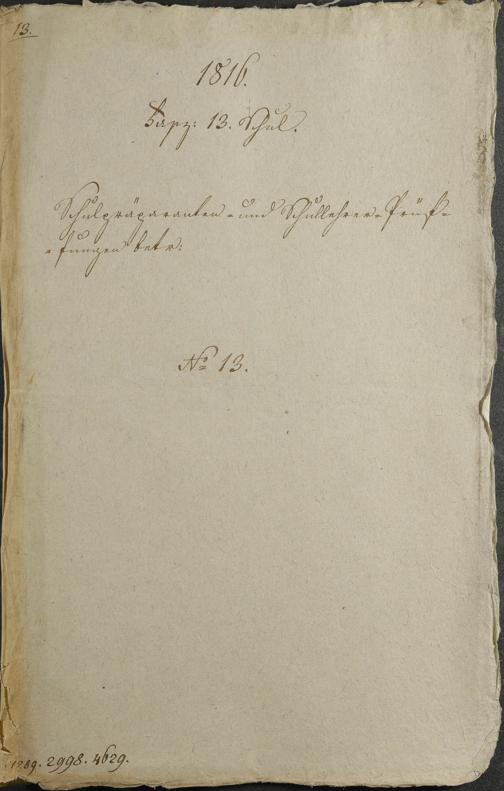 13.
1816.
Farz: 13. Schul.
Schulpräparanten- und Schullehrer-Prüf-
-fungen betr:
No 13.
1289. 2998. 4629.